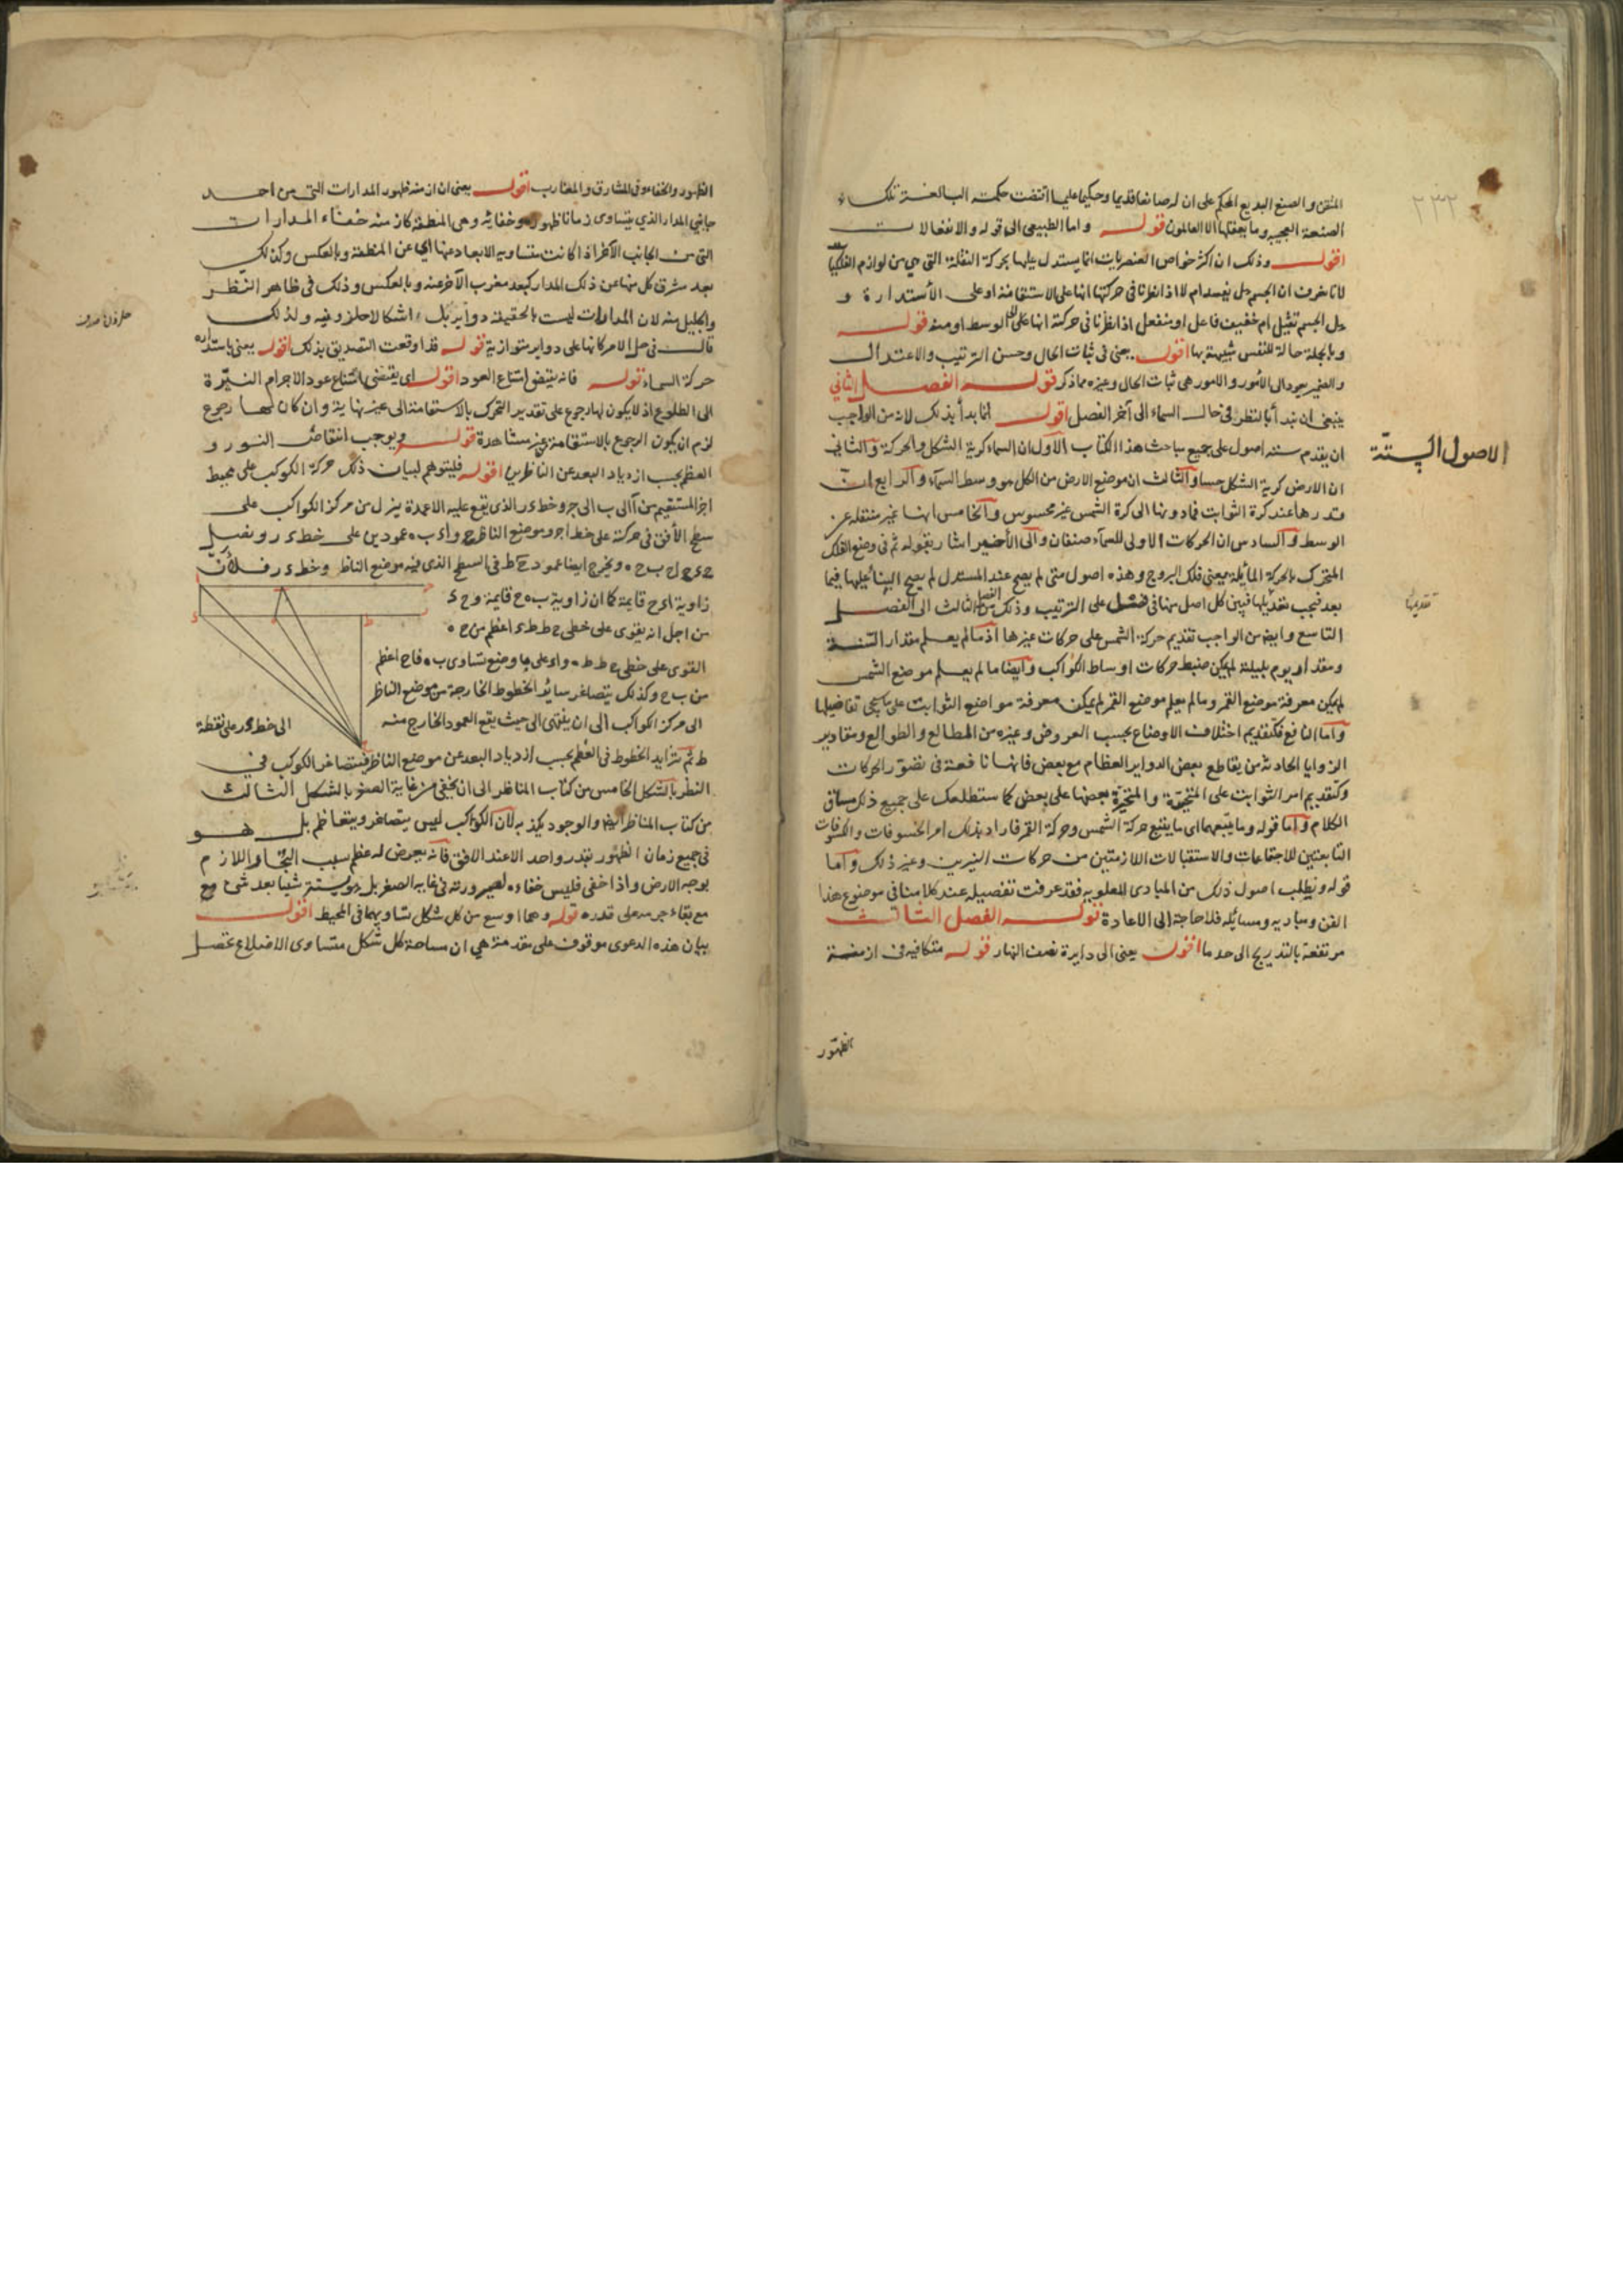 المتقن والصنع البديع المحكم على ان له صانعا قديما وحكيما عليما اقتضت حكمته البالغة تلك
الصنعة العجيبة وما يعقلها الا العالمون قوله واما الطبيعى الى قوله والانفعالات
اقول وذلك ان اكثر خواص العنصريات انما يستدل عليها بحركة النقلة التى هى من لوازم الفلكيات
لانا نعرف ان الجسم هل يفسد ام لا اذا نظرنا فى حركتها انها على الاستقامة او على الاستدارة و
هل الجسم ثقيل ام خفيف فاعل او منفعل اذا نظرنا فى حركته انها على الوسط او منه قوله
وبالجملة حالة للنفس شبيهة بها اقول يعنى فى ثبات الحال وحسن الترتيب والاعتدال
والضمير يعود الى الامور والامور هى ثبات الحال وغيره مما ذكر قوله الفصل الثانى
ينبغى ان نبدأ بالنظر فى حال السماء الى آخر الفصل اقول انما بدأ بذلك لانه من الواجب
ان يقدم ستة اصول على جميع مباحث هذا الكتاب الاول ان السماء كرية الشكل والحركة والثانى
ان الارض كرية الشكل حسا والثالث ان موضع الارض من الكل هو وسط السماء والرابع ان
قدرها عند كرة الثوابت فما دونها الى كرة الشمس غير محسوس والخامس انها غير منتقلة عن
الوسط والسادس ان الحركات الاولى للسماء صنفان والى الأخير اشار بقوله ثم فى وضع الفلك
المتحرك بالحركة المائلة يعنى فلك البروج وهذه اصول متى لم يصح عند المستدل لم يصح البناء عليها فيما
بعد فيجب تقديمها فيبين كل اصل منها فى فصل على الترتيب وذلك من الفصل الثالث الى الفصل
التاسع وايضا من الواجب تقديم حركة الشمس على حركات غيرها اذ ما لم يعلم مقدار السنة
ومقدار يوم بليلته لم يمكن ضبط حركات اوساط الكواكب وايضا ما لم يعلم موضع الشمس
لم يمكن معرفة موضع القمر وما لم يعلم موضع القمر لم يمكن معرفة مواضع الثوابت على ما سيجى تفاصيلها
واما النافع فكتقديم اختلاف الاوضاع بحسب العروض وغيره من المطالع والطوالع ومقادير
الزوايا الحادثة من تقاطع بعض الدوائر العظام مع بعض فانها نافعة فى تصور الحركات
وكتقديم امر الثوابت على المتحيرة والمتحيرة بعضها على بعض كما ستطلعك على جميع ذلك مساق
الكلام واما قوله وما يتبعهما اى ما يتبع حركة الشمس وحركة القمر فاراد بذلك امر الخسوفات والكسوفات
التابعتين للاجتماعات والاستقبالات اللازمتين من حركات النيرين وغير ذلك واما
قوله ونطلب اصول ذلك من المبادى المعلومة فقد عرفت تفصيله عند كلامنا فى موضوع هذا
الفن ومباديه ومسائله فلا حاجة الى الاعادة قوله الفصل الثالث
مرتفعة بالتدريج الى حد ما اقول يعنى الى دايرة نصف النهار قوله متكافية فى ازمنة
الاصول الستة
تقديمها
٢٣٢
الظهور
الظهور والخفاء وفى المشارق والمغارب اقول يعنى ان ازمنة ظهور المدارات التى من احد
جانبى المدار الذى يتساوى زمانا ظهوره وخفائه وهى المنطقة كازمنة خفاء المدارات
التى من الجانب الآخر اذا كانت متساوية الابعاد عنها اى عن المنطقة وبالعكس وكذلك
بعد مشرق كل منها عن ذلك المدار كبعد مغرب الآخر عنه وبالعكس وذلك فى ظاهر النظر
والجليل منه لان المدارات ليست بالحقيقة دواير بل اشكالا حلزونية ولذلك
قال فى جل الامر كانها على دواير متوازية قوله فذا وقعت التصديق بذلك اقول يعنى باستدارة
حركة السماء قوله فانه يقتضى امتناع العود اقول اى يقتضى امتناع عود الاجرام النيرة
الى الطلوع اذ لا يكون لها رجوع على تقدير التحرك بالاستقامة الى غير نهاية وان كان لها رجوع
لزم ان يكون الرجوع بالاستقامة غير مشاهدة قوله ويوجب انتقاص النور و
العظم بحسب ازدياد البعد عن الناظرين اقول فليتوهم لبيان ذلك حركة الكوكب على محيط
اجزا المستقيم من آ الى ب الى جـ وخط د ر الذى يقع عليه الاعمدة ينزل من مركز الكواكب على
سطح الأفق فى حركته على خط ا جـ وموضع الناظر ح و ا د ب ه عمودين على خط د ر ونصل
ح د ح ا ح ب ح ه ويخرج ايضا عمود ح ط فى السطح الذى فيه موضع الناظر وخط د ر فلأن
زاوية ا د ح قايمة كما ان زاوية ب ه ح قايمة و ح د
من اجل انه يقوى على خطى ح ط ط د اعظم من ح ه
القوى على خطى ح ط ط ه و ا د على ما وضع تساوى ب ه فا ح اعظم
من ب ح وكذلك يتصاغر سائر الخطوط الخارجة من موضع الناظر
الى مركز الكواكب الى ان ينتهى الى حيث يقع العمود الخارج منه
الى خط د ر على نقطة
ط ثم تتزايد الخطوط فى العظم بحسب ازدياد البعد عن موضع الناظر فيتصاغر الكوكب فى
النظر بالشكل الخامس من كتاب المناظر الى ان يخفى من غاية الصغر بالشكل الثالث
من كتاب المناظر ايضا والوجود يكذبه لان الكواكب ليس يتصاغر ويتعاظم بل هو
فى جميع زمان الظهور بقدر واحد الا عند الافق فانه يعرض له عظم بسبب البخار اللازم
بوجه الارض واذا خفى فليس خفاءه لصيرورته فى غاية الصغر بل هو يستتر شيئا بعد شئ مع
مع بقاء جرمه على قدره قوله وهما اوسع من كل شكل تساويهما فى المحيط اقول
بيان هذه الدعوى موقوف على مقدمة هى ان مساحة كل شكل متساوى الاضلاع تحصل